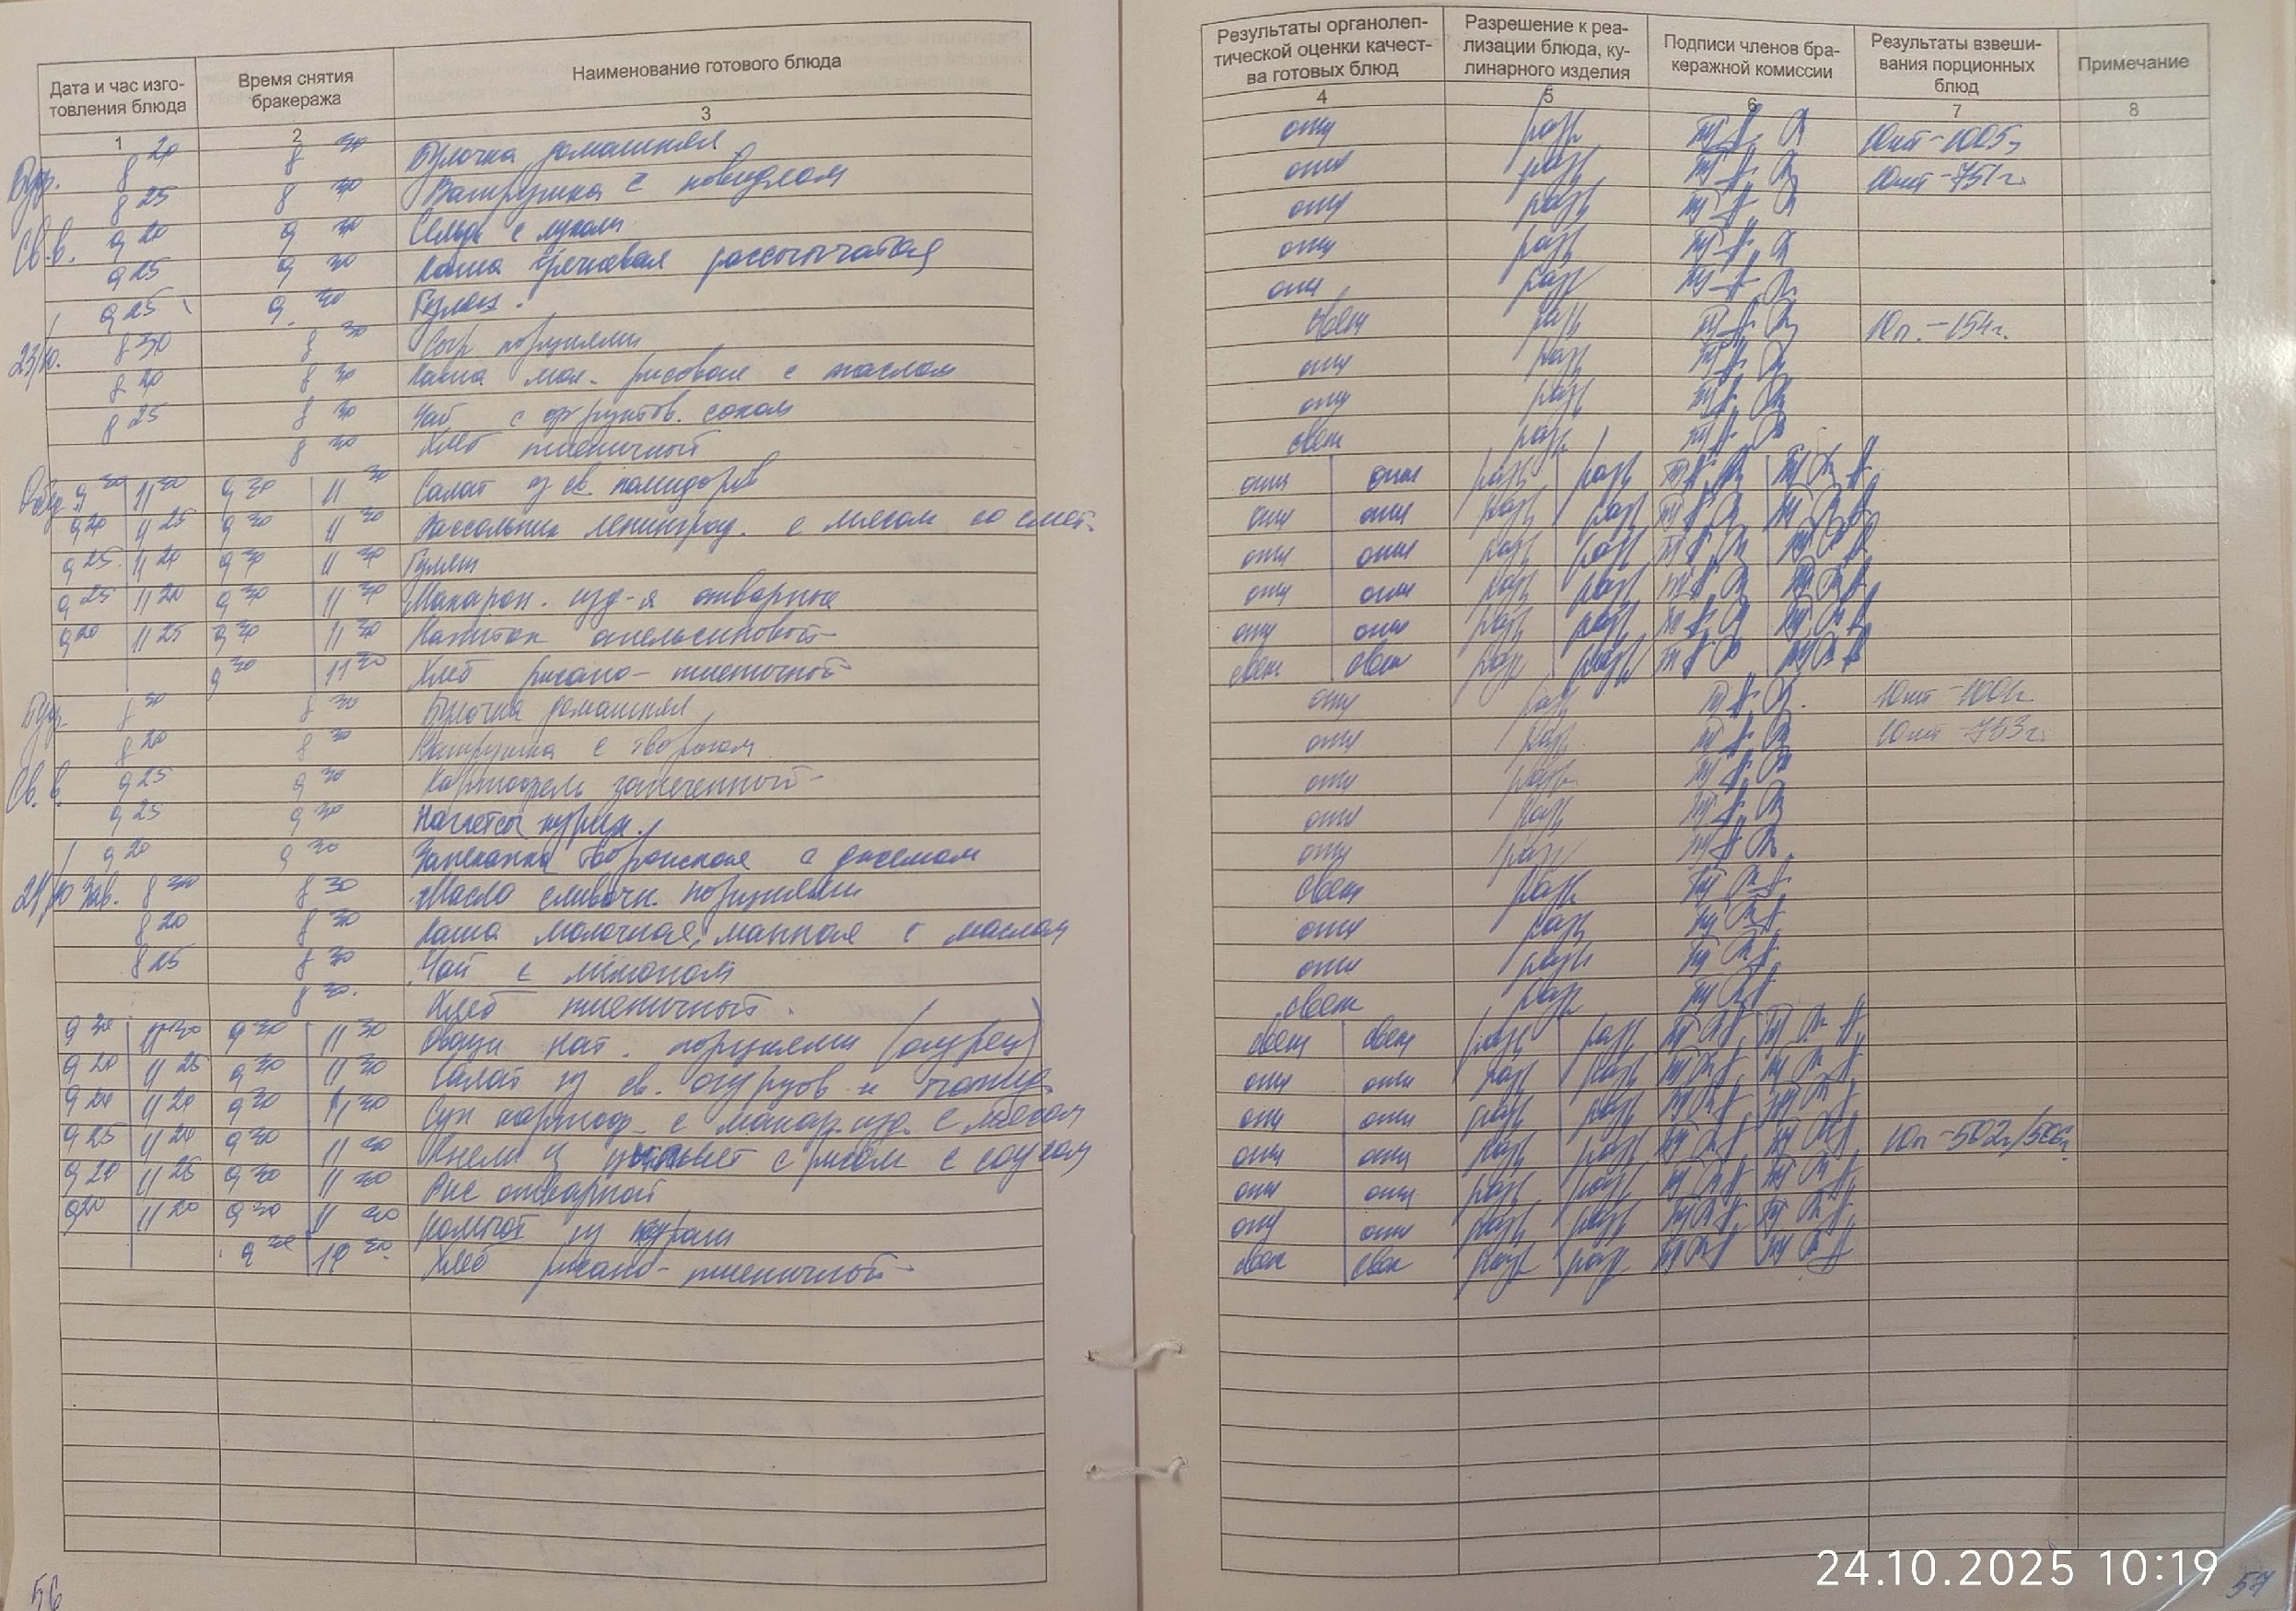 Дата и час изго-
товления блюда
Время снятия
бракеража
Наименование готового блюда
Результаты органолеп-
тической оценки качест-
ва готовых блюд
Разрешение к реа-
лизации блюда, ку-
линарного изделия
Подписи членов бра-
керажной комиссии
Результаты взвеши-
вания порционных
блюд
Примечание
1 2 3 4 5 6 7 8
Буф. 8 20 8 30 Булочка домашняя отл разр 10шт-1005г
8 25 8 30 Ватрушка с повидлом отл разр 10шт-751г.
Св.в. 9 20 9 30 Сельдь с луком отл разр
9 25 9 30 Каша гречневая рассыпчатая отл разр
9 25 9 30 Гуляш. отл разр
23/10. 8 30 8 30 Сыр порциями свеж разр 10п.-154г.
8 20 8 30 Каша мол. рисовая с маслом отл разр
8 25 8 30 Чай с фруктов. соком отл разр
8 30 Хлеб пшеничный свеж разр
Обед 9 30 11 30 9 30 11 30 Салат из св. помидоров отл отл разр разр
9 20 11 25 9 30 11 30 Рассольник ленинград. с мясом со смет. отл отл разр разр
9 25 11 20 9 30 11 30 Гуляш отл отл разр разр
9 25 11 20 9 30 11 30 Макарон. изд-я отварные отл отл разр разр
9 20 11 25 9 30 11 30 Напиток апельсиновый отл отл разр разр
9 30 11 30 Хлеб ржано-пшеничный свеж свеж разр разр
Буф. 8 30 Булочка домашняя отл разр
8 20 8 30 Ватрушка с творогом отл разр 10шт-753г.
Св.в. 9 25 9 30 Картофель запеченный отл разр
9 25 9 30 Наггетсы курин. отл разр
9 20 9 30 Запеканка творожная с джемом отл разр
24/10 Зав. 8 30 8 30 Масло сливочн. порциями свеж разр
8 20 8 30 Каша молочная манная с маслом отл разр
8 25 8 30 Чай с лимоном отл разр
8 30. Хлеб пшеничный. свеж разр
9 30 11 30 9 30 11 30 Овощи нат. порциями (огурец) свеж свеж разр разр
9 20 11 25 9 30 11 30 Салат из св. огурцов и помид. отл отл разр разр
9 20 11 20 9 30 11 30 Суп картоф. с макар. изд. с мясом отл отл разр разр
9 25 11 20 9 30 11 30 Кнели с рисом с соусом отл отл разр разр 10п-502г/506г
9 20 11 25 9 30 11 30 Рис отварной отл отл разр разр
9 20 11 20 9 30 11 30 Компот из отл отл разр разр
9 30 30 Хлеб ржано-пшеничный свеж свеж разр разр
56
24.10.2025 10:19
57